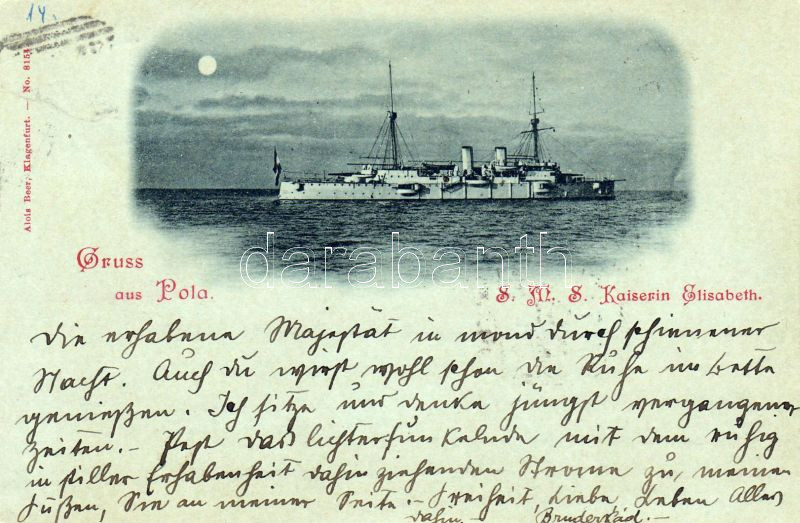 14.
Alois Beer, Klagenfurt. — No. 815
darabanth
Gruss
aus Pola.
S. M. S. Kaiserin Elisabeth.
Die erhabene Majestät in mond durch schienener
Nacht. Auch du wirst wohl schon die Ruhe im Bette
genießen. Ich sitze und denke jüngst vergangener
Zeiten. — Pest das lichterfunkelnde mit dem ruhig
in stiller Erhabenheit dahin ziehenden Strome zu meinen
Füßen, Sie an meiner Seite — Freiheit, Liebe, Leben Alles
dahin —